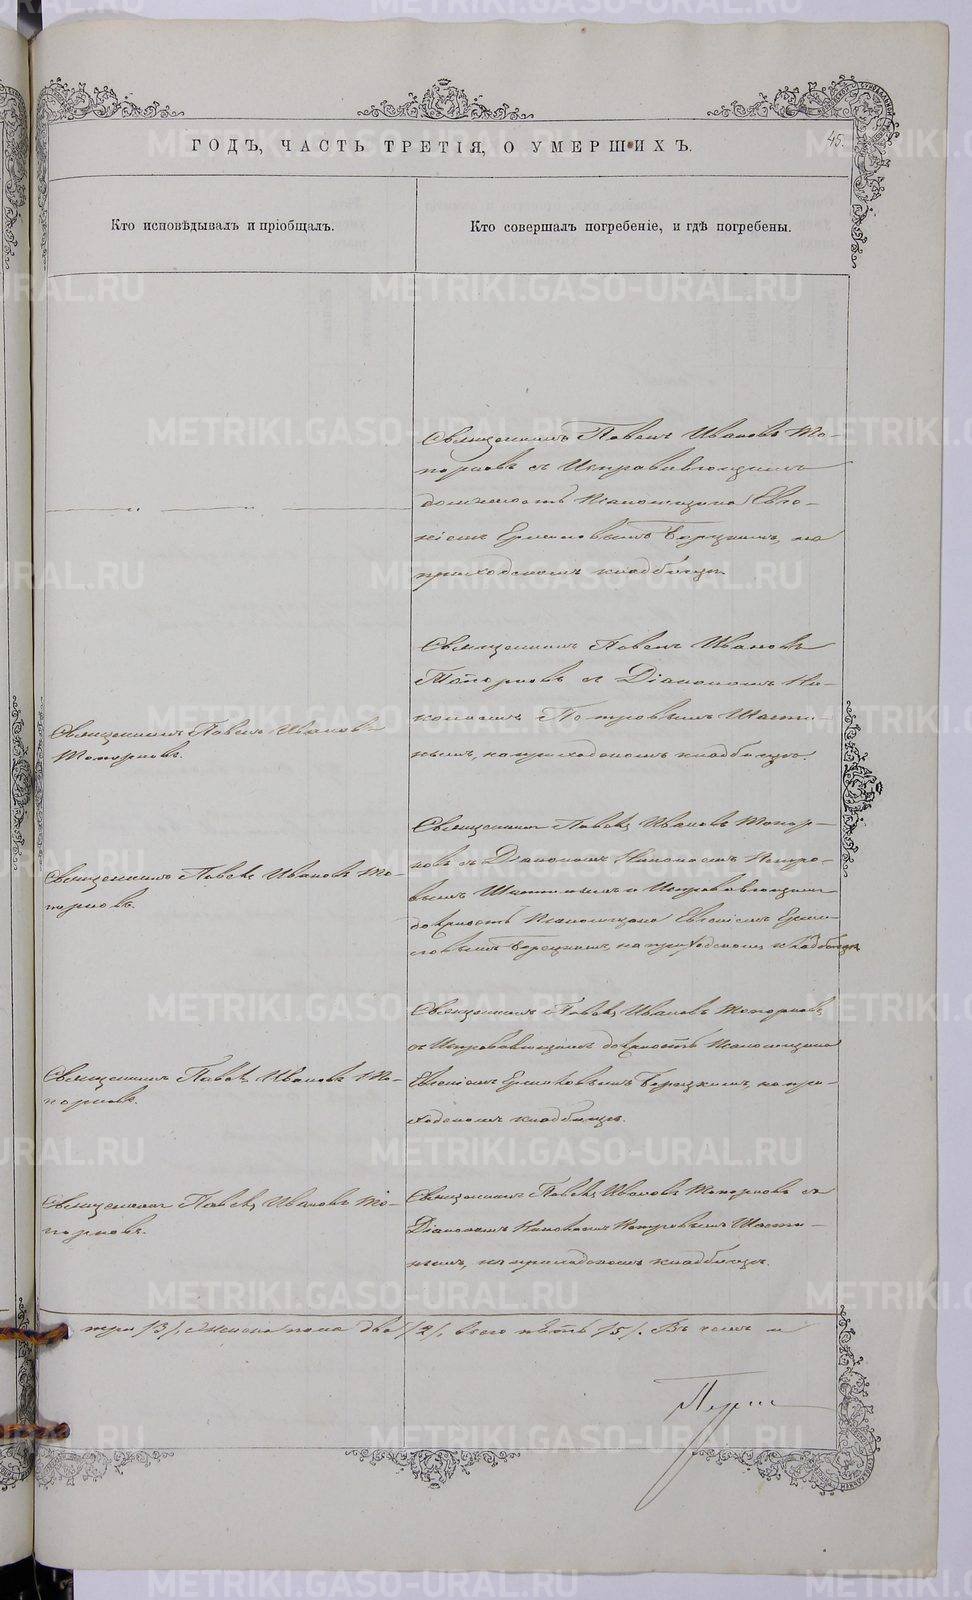 45.
ГОДЪ, ЧАСТЬ ТРЕТІЯ, О УМЕРШИХЪ.
Кто исповѣдывалъ и пріобщалъ.
Кто совершалъ погребеніе, и гдѣ погребены.
Священникъ Павелъ Ивановъ То-
порковъ съ Исправляющимъ
должность Псаломщика Евге-
ніемъ Борецкимъ, на
приходскомъ кладбищѣ.
Священникъ Павелъ Ивановъ
Топорковъ.
Священникъ Павелъ Ивановъ
Топорковъ съ Діакономъ Ни-
колаемъ Петровымъ
нымъ, на приходскомъ кладбищѣ.
Священникъ Павелъ Ивановъ То-
порковъ.
Священникъ Павелъ Ивановъ Топор-
ковъ съ Діакономъ Николаемъ Петро-
вымъ и Исправляющимъ
должность Псаломщика Евгеніемъ
Борецкимъ, на приходскомъ кладбищѣ
Священникъ Павелъ Ивановъ То-
порковъ.
Священникъ Павелъ Ивановъ Топорковъ
съ Исправляющимъ должность Псаломщика
Евгеніемъ Борецкимъ, на при-
ходскомъ кладбищѣ.
Священникъ Павелъ Ивановъ То-
порковъ.
Священникъ Павелъ Ивановъ Топорковъ съ
Діакономъ Николаемъ Петровымъ
нымъ, на приходскомъ кладбищѣ.
три /3/, женска пола два /2/, всего пять /5/. Въ чемъ и
METRIKI.GASO-URAL.RU